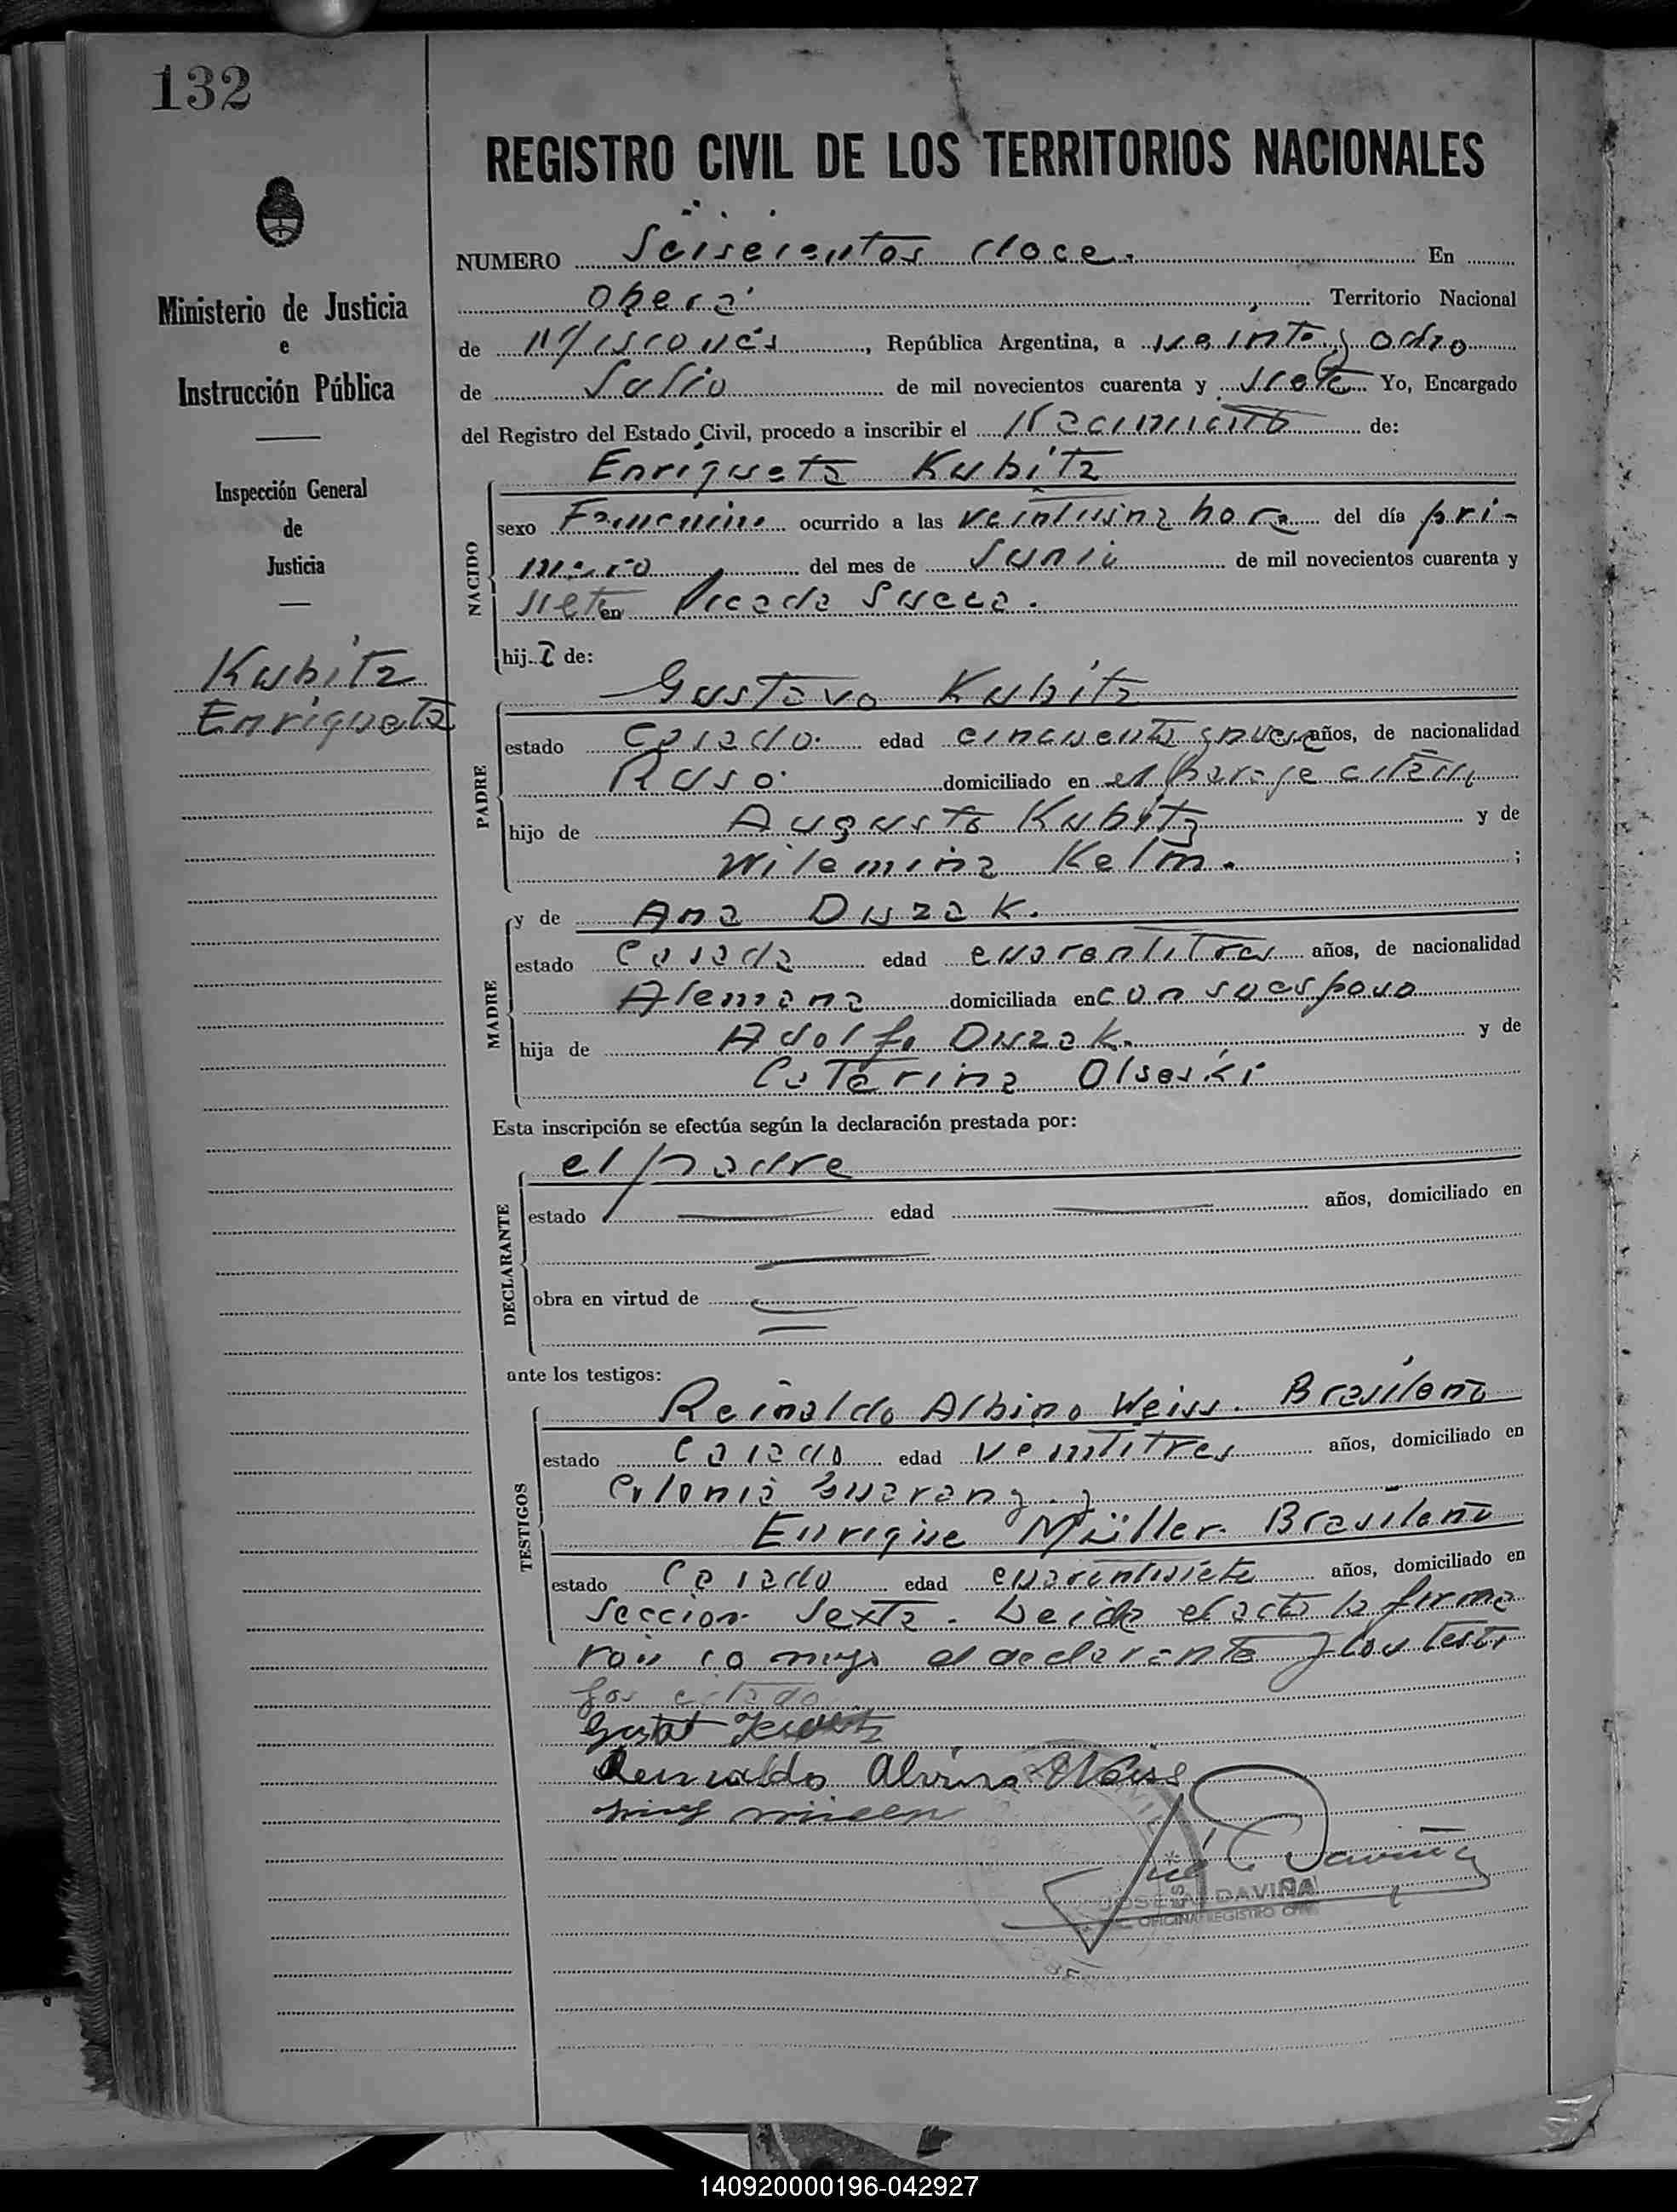 132
REGISTRO CIVIL DE LOS TERRITORIOS NACIONALES
Ministerio de Justicia
e
Instrucción Pública
Inspección General
de
Justicia
Kubitz
Enriqueta
NUMERO Seiscientos doce. En
Oberá Territorio Nacional
de Misiones, República Argentina, a veinte y ocho
de Julio de mil novecientos cuarenta y siete Yo, Encargado
del Registro del Estado Civil, procedo a inscribir el Nacimiento de:
Enriqueta Kubitz
NACIDO
sexo Femenino ocurrido a las veintiuna hora del día pri-
mero del mes de Junio de mil novecientos cuarenta y
siete en Picada Sueca.
hija de:
Gustavo Kubitz
PADRE
estado Casado edad cincuenta y nueve años, de nacionalidad
Ruso domiciliado en el paraje citado
hijo de Augusto Kubitz y de
Wilemina Kelm. ;
y de Ana Duzak.
MADRE
estado Casada edad cuarentitres años, de nacionalidad
Alemana domiciliada en con su esposo
hija de Adolfo Duzak. y de
Caterina Olseski
Esta inscripción se efectúa según la declaración prestada por:
el padre
DECLARANTE
estado edad años, domiciliado en
obra en virtud de
ante los testigos:
Reinaldo Albino Weiss. Brasileño
TESTIGOS
estado Casado edad veintitres años, domiciliado en
Colonia Guarany. y
Enrique Müller. Brasileño
estado Casado edad cuarentisiete años, domiciliado en
Seccion Sexta. Leida el acta la firma
ron co migo el declarante y los testi
gos citado
Gustat
Reinaldo Alvino Weiss
José Daviña
JOSE DAVIÑA
OFICINA REGISTRO CIVIL
140920000196-042927